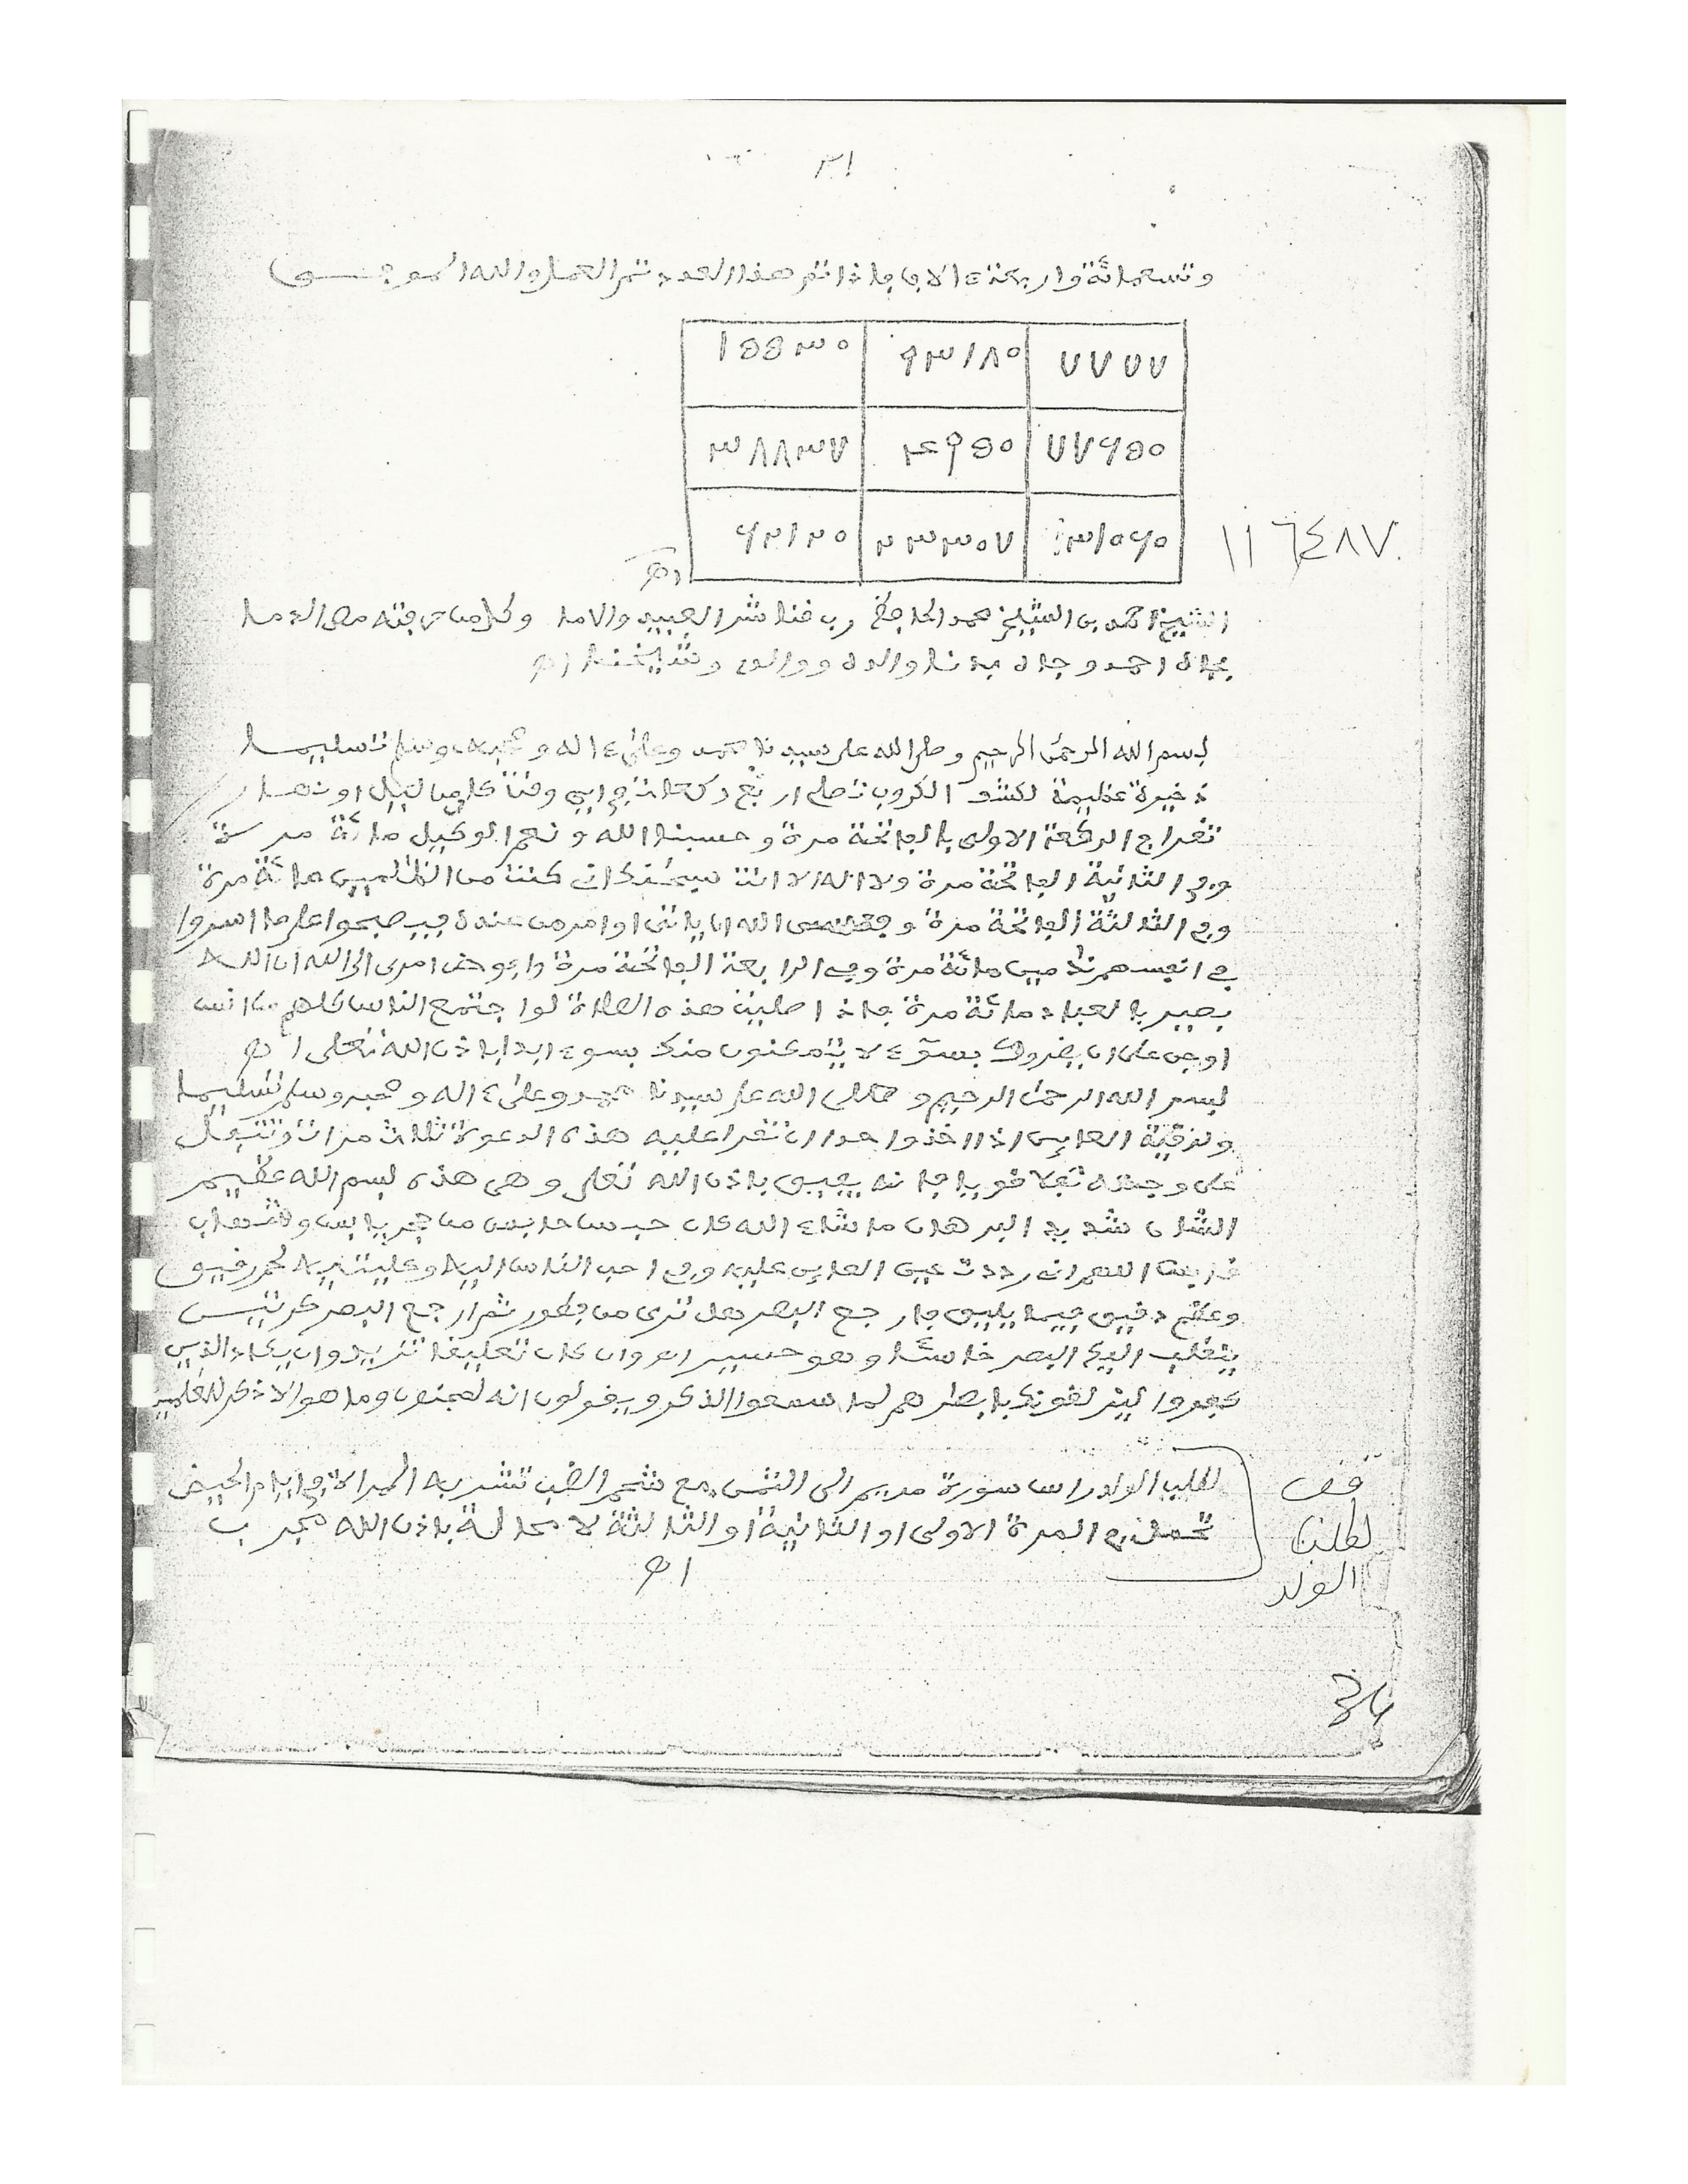 ٣١
وتسعمائة واربعة ءالاف فاذا تم هذا العدد تم العمل والله الموفــــق
٧٧٧٧ ٩٣١٨٠ ١٥٥٣٠
٧٧٦٥٠ ٤٦٥٩٠ ٣٨٨٣٧
٣١٠٦٠ ٢٣٣٠٧ ٦٢١٢٠
١١٦٤٨٧
الشيخ احمد بن الشيخ محمد الحافظ رب قنا شر العبيد والاما وكل من عرفته مص الدما
بجاه احمد وجاه بدنا والده ووالدي وشيخنا اهـ
بسم الله الرحمن الرحيم وصلى الله على سيدنا محمد وعلى ءاله وصحبه وسلم تسليما
ذخيرة عظيمة لكشف الكروب تصلى اربع ركعات في اي وقت كان من ليل او نهار
تقرا في الركعة الاولى بالفاتحة مرة وحسبنا الله ونعم الوكيل مائة مرة
وفي الثانية الفاتحة مرة ولا اله الا انت سبحنك اني كنت من الظلمين مائة مرة
وفي الثالثة الفاتحة مرة وفعسى الله ان ياتي او امر من عنده فيصبحوا على ما اسروا
في انفسهم ندمين مائة مرة وفي الرابعة الفاتحة مرة وافوض امري الى الله ان الله
بصير بالعباد مائة مرة فاذا صليت هذه الصلاة لو اجتمع الناس كلهم من انس
او جن على ان يضروك بسوء لا يتمكنون منك بسوء ابدا باذن الله تعلى اهـ
بسم الله الرحمن الرحيم وصلى الله على سيدنا محمد وعلى ءاله وصحبه وسلم تسليما
ولرقية العاين اذا اخذوا حدا ان تقرا عليه هذه الدعوة ثلاث مرات وتتفل
على وجهه تفلا قويا فانه يعين باذن الله تعلى وهي هذه بسم الله عظيم
الشان شديد البرهان ما شاء الله كان حبس حابس من حجر يابس وشهاب
قابس اللهم اني رددت عين العاين عليه وفي احب الناس اليه وعليه لحم رقيق
وعظم دقيق فيما يليق فارجع البصر هل ترى من فطور ثم ارجع البصر كرتين
ينقلب اليك البصر خاسئا وهو حسير اهـ وان كان تعليقا تزيد وان يكاد الذين
كفروا ليزلقونك بابصارهم لما سمعوا الذكر ويقولون انه لمجنون وما هو الا ذكر للعلمين
لطلب الولد راس سورة مريم الى الشمس مع شحم الضب تشربه المراة في ايام الحيض
تحمل في المرة الاولى او الثانية او الثالثة لا محالة باذن الله مجرب
اهـ
قف
لطلب
الولد
34